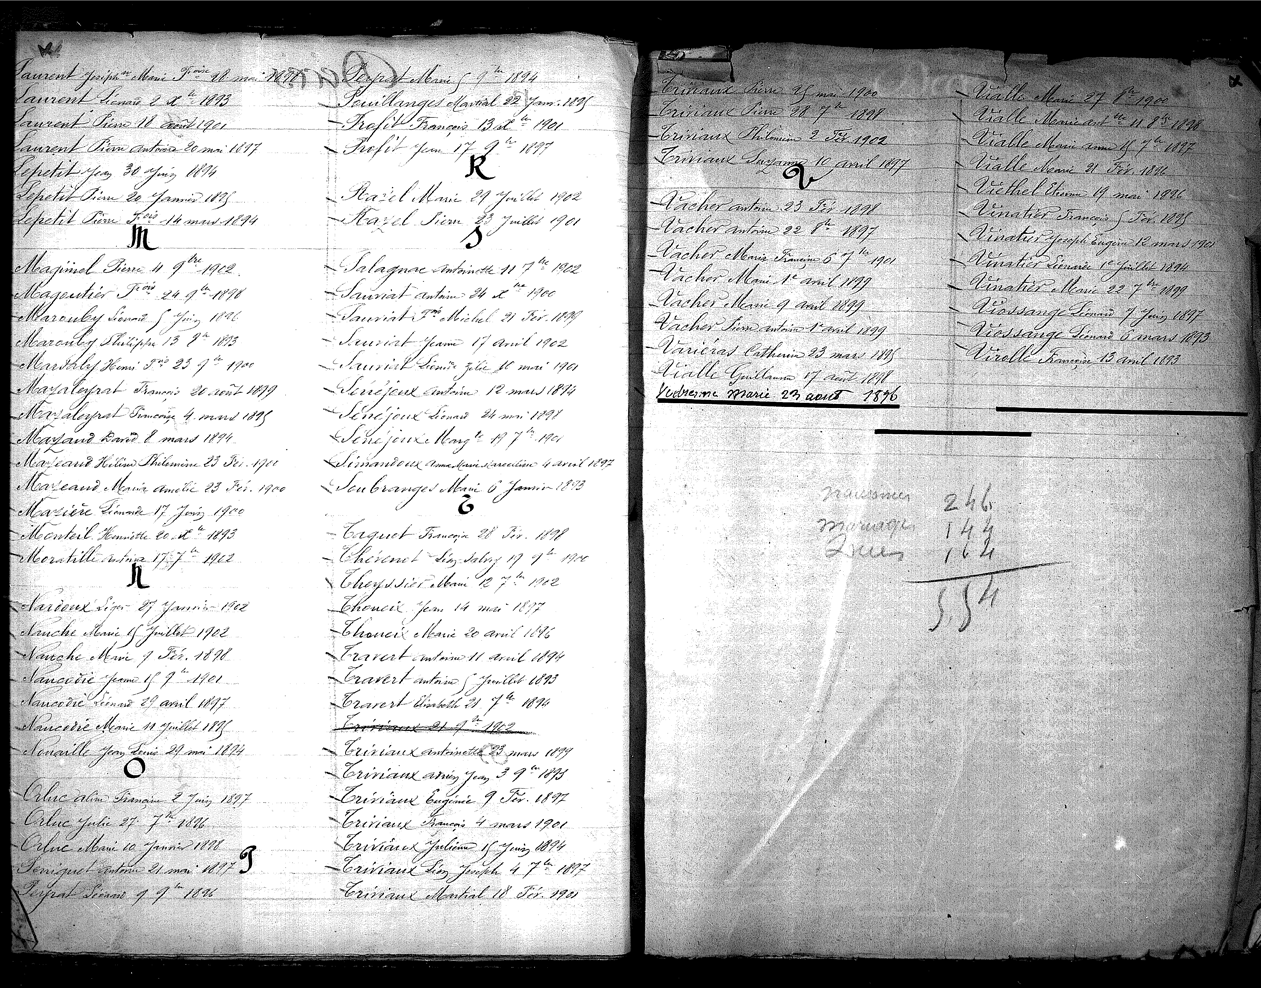 Laurent Joseph Marie Fçoise 28 mai 1898
Laurent Léonard 2 Xbre 1893
Laurent Pierre 18 août 1901
Laurent Pierre Antoine 20 mai 1897
Lepetit Jean 30 Juin 1894
Lepetit Pierre 20 Janvier 1895
Lepetit Pierre Fçois 14 mars 1894
M
Magimel Pierre 4 9bre 1902
Magoutier Fçois 24 9bre 1898
Marouby Léonard 5 Juin 1896
Marouby Philippe 13 8bre 1893
Mardaly Henri 23 9bre 1900
Mazaleyrat François 20 août 1899
Mazaleyrat Françoise 4 mars 1895
Mazaud David 8 mars 1894
Mazeaud Hélène Philomène 23 Fév. 1901
Mazeaud Maria Amélie 23 Fév. 1900
Mazière Léonarde 17 Juin 1900
Monteil Henriette 20 Xbre 1893
Moratille 17 7bre 1902
N
Nardoux Léger 27 Janvier 1902
Nauche Marie 15 Juillet 1902
Nauche Marie 9 Fév. 1898
Naucodie Jeanne 15 9bre 1901
Naucodie Léonard 29 avril 1897
Naucodie Marie 11 Juillet 1895
Nouaille Jean Louis 29 mai 1894
O
Orluc Françoise 2 Juin 1897
Orluc Julie 27 7bre 1896
Orluc Marie 10 Janvier 1898
P
Peniguet Antoine 21 mai 1897
Peyrat Léonard 9 9bre 1896
Peyrat Marie 5 9bre 1894
Pouillanges Martial 22 Janv. 1895
Profit François 13 Xbre 1901
Profit Jean 17 9bre 1897
R
Razel Marie 29 Juillet 1902
Razel Pierre 23 Juillet 1901
S
Salagnac Antoinette 11 7bre 1902
Sauriat Antoine 24 Xbre 1900
Sauriat Michel 21 Fév. 1899
Sauriat Jeanne 17 avril 1902
Sauriat 10 mai 1901
Sénéjoux Antoine 12 mars 1894
Sénéjoux Léonard 24 mai 1898
Sénéjoux Margte 19 7bre 1901
Simandoux Anne Marie Marceline 4 avril 1897
Soubranges Marie 6 Janvier 1893
T
Taquet François 28 Fév. 1898
Thévenot 19 9bre 1900
Theyssier Marie 12 7bre 1902
Thoueix Jean 14 mai 1897
Thoueix Marie 20 avril 1896
Travert Antoine 11 avril 1894
Travert Antoine 5 Juillet 1893
Travert Elisabeth 21 7bre 1894
Triviaux 21 9bre 1902
Triviaux Antoinette 23 mars 1899
Triviaux Jean 3 9bre 1893
Triviaux Eugénie 9 Fév. 1897
Triviaux François 4 mars 1901
Triviaux Julienne 15 Juin 1894
Triviaux Léon Joseph 4 7bre 1897
Triviaux Martial 18 Fév. 1901
Triviaux Pierre 25 mai 1900
Triviaux Pierre 28 7bre 1898
Triviaux Philomène 2 Fév. 1902
Triviaux Suzanne 10 avril 1897
V
Vacher Antoine 23 Fév 1898
Vacher Antoine 22 8bre 1897
Vacher Marie Françoise 6 7bre 1901
Vacher Marie 1er avril 1899
Vacher Marie 9 avril 1899
Vacher Pierre Antoine 1er avril 1899
Variéras Catherine 23 mars 1895
Vialle Guillaume 17 août 1898
Vedrenne Marie 23 août 1896
Vialle Marie 27 8bre 1900
Vialle Marie 11 8bre 1898
Vialle Marie Anne 15 7bre 1897
Vialle Marie 21 Fév. 1896
Viethel Etienne 19 mai 1896
Vinatier François 5 Fév. 1895
Vinatier Joseph Eugène 12 mars 1901
Vinatier Léonarde 1er Juillet 1894
Vinatier Marie 22 7bre 1899
Viossange Léonard 7 Juin 1897
Viossange Léonard 6 mars 1893
Virolle Françoise 13 avril 1893
naissances 246
mariages 144
Décès 164
554